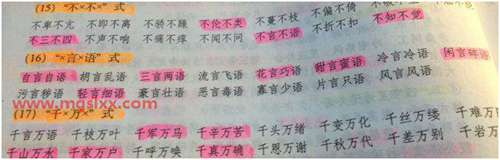 (15) “不×不×” 式
不卑不亢 不即不离 不骄不躁 不伦不类 不蔓不枝 不偏不倚
不三不四 不声不响 不痛不痒 不闻不问 不言不语 不折不扣 不知不觉
(16) “×言×语” 式
自言自语 胡言乱语 三言两语 流言飞语 花言巧语 甜言蜜语 冷言冷语 闲言碎语
污言秽语 轻言细语 豪言壮语 恶言毒语 寡言少语 片言只语 风言风语
www.mgslxx.com
(17) “千×万×” 式
千言万语 千枝万叶 千军万马 千辛万苦 千头万绪 千变万化 千丝万缕 千难万
千山万水 千家万户 千呼万唤 千真万确 千恩万谢 千秋万代 千差万别 千岩万